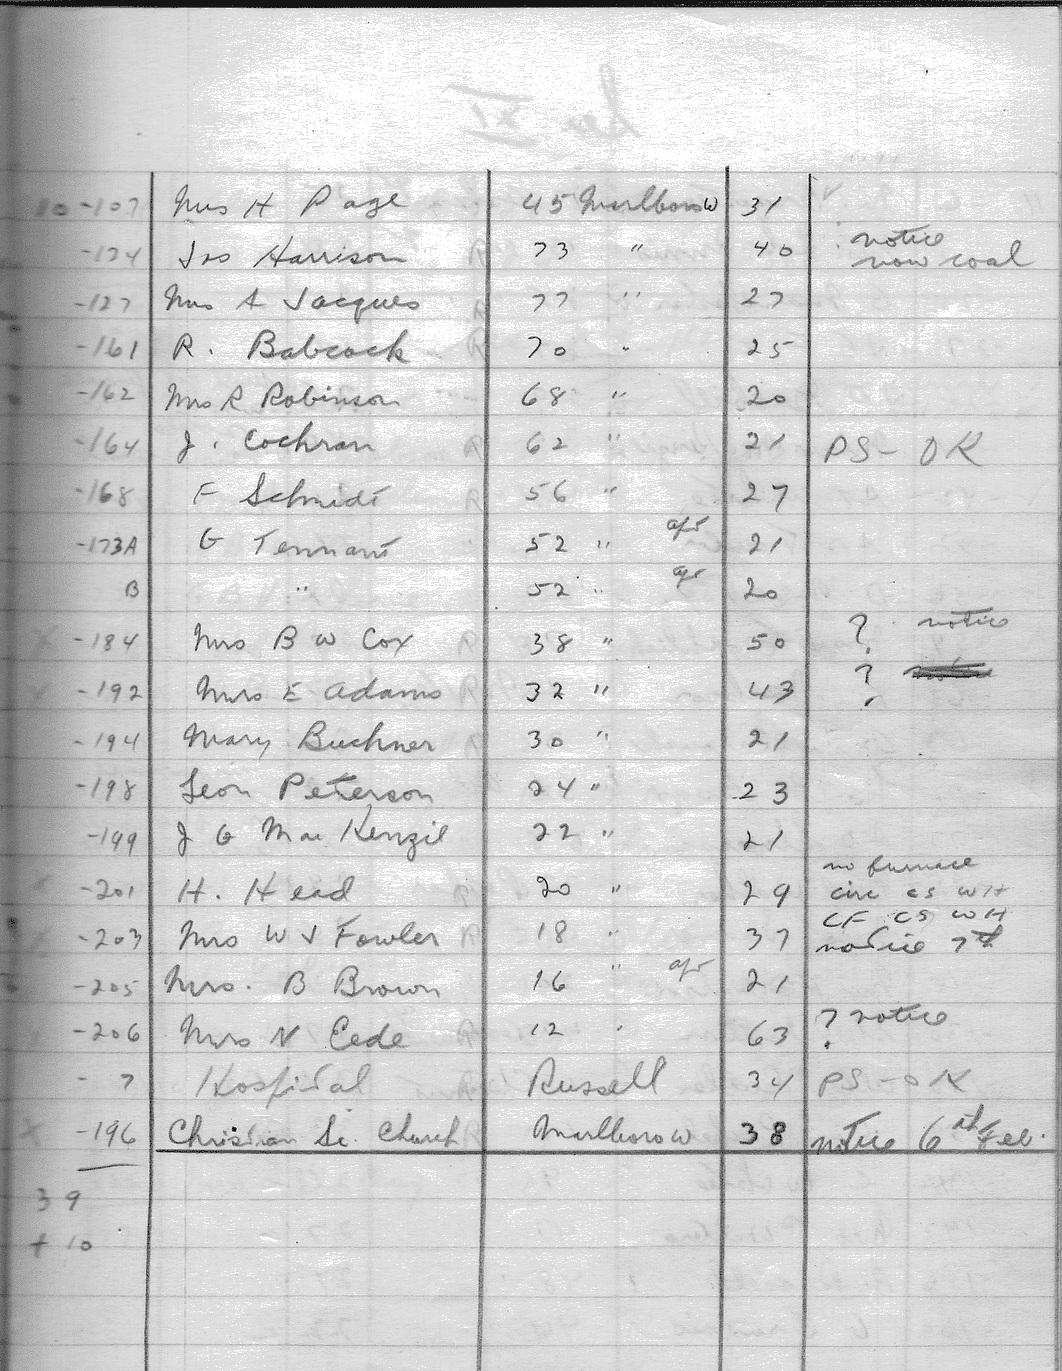 10 -107 Mrs H Page 45 Marlboro W 31
-124 Jas Harrison 73 " 40 notice now coal
-127 Mrs A Jacques 77 " 27
-161 R. Babcock 70 " 25
-162 Mrs R Robinson 68 " 20
-164 J. Cochran 62 " 21 PS-OK
-168 F Schmidt 56 " 27
-173A G Tennant 52 " apt 21
B " 52 " apt 20
-184 Mrs B W Cox 38 " 50 ? notice
-192 Mrs E Adams 32 " 43 ?
-194 Mary Buchner 30 " 21
-198 Leon Peterson 24 " 23
-199 J G MacKenzie 22 " 21
no furnace
-201 H. Head 20 " 29 circ CS WH
CF CS WH
-203 Mrs W J Fowler 18 " 37 notice 7th
-205 Mrs. B Brown 16 " apt 21
-206 Mrs N Eede 12 " 63 ? notice
-7 Hospital Russell 34 PS-OK
X -196 Christian Sc. Church Marlboro W 38 notice 6th Feb.
39
+ 10